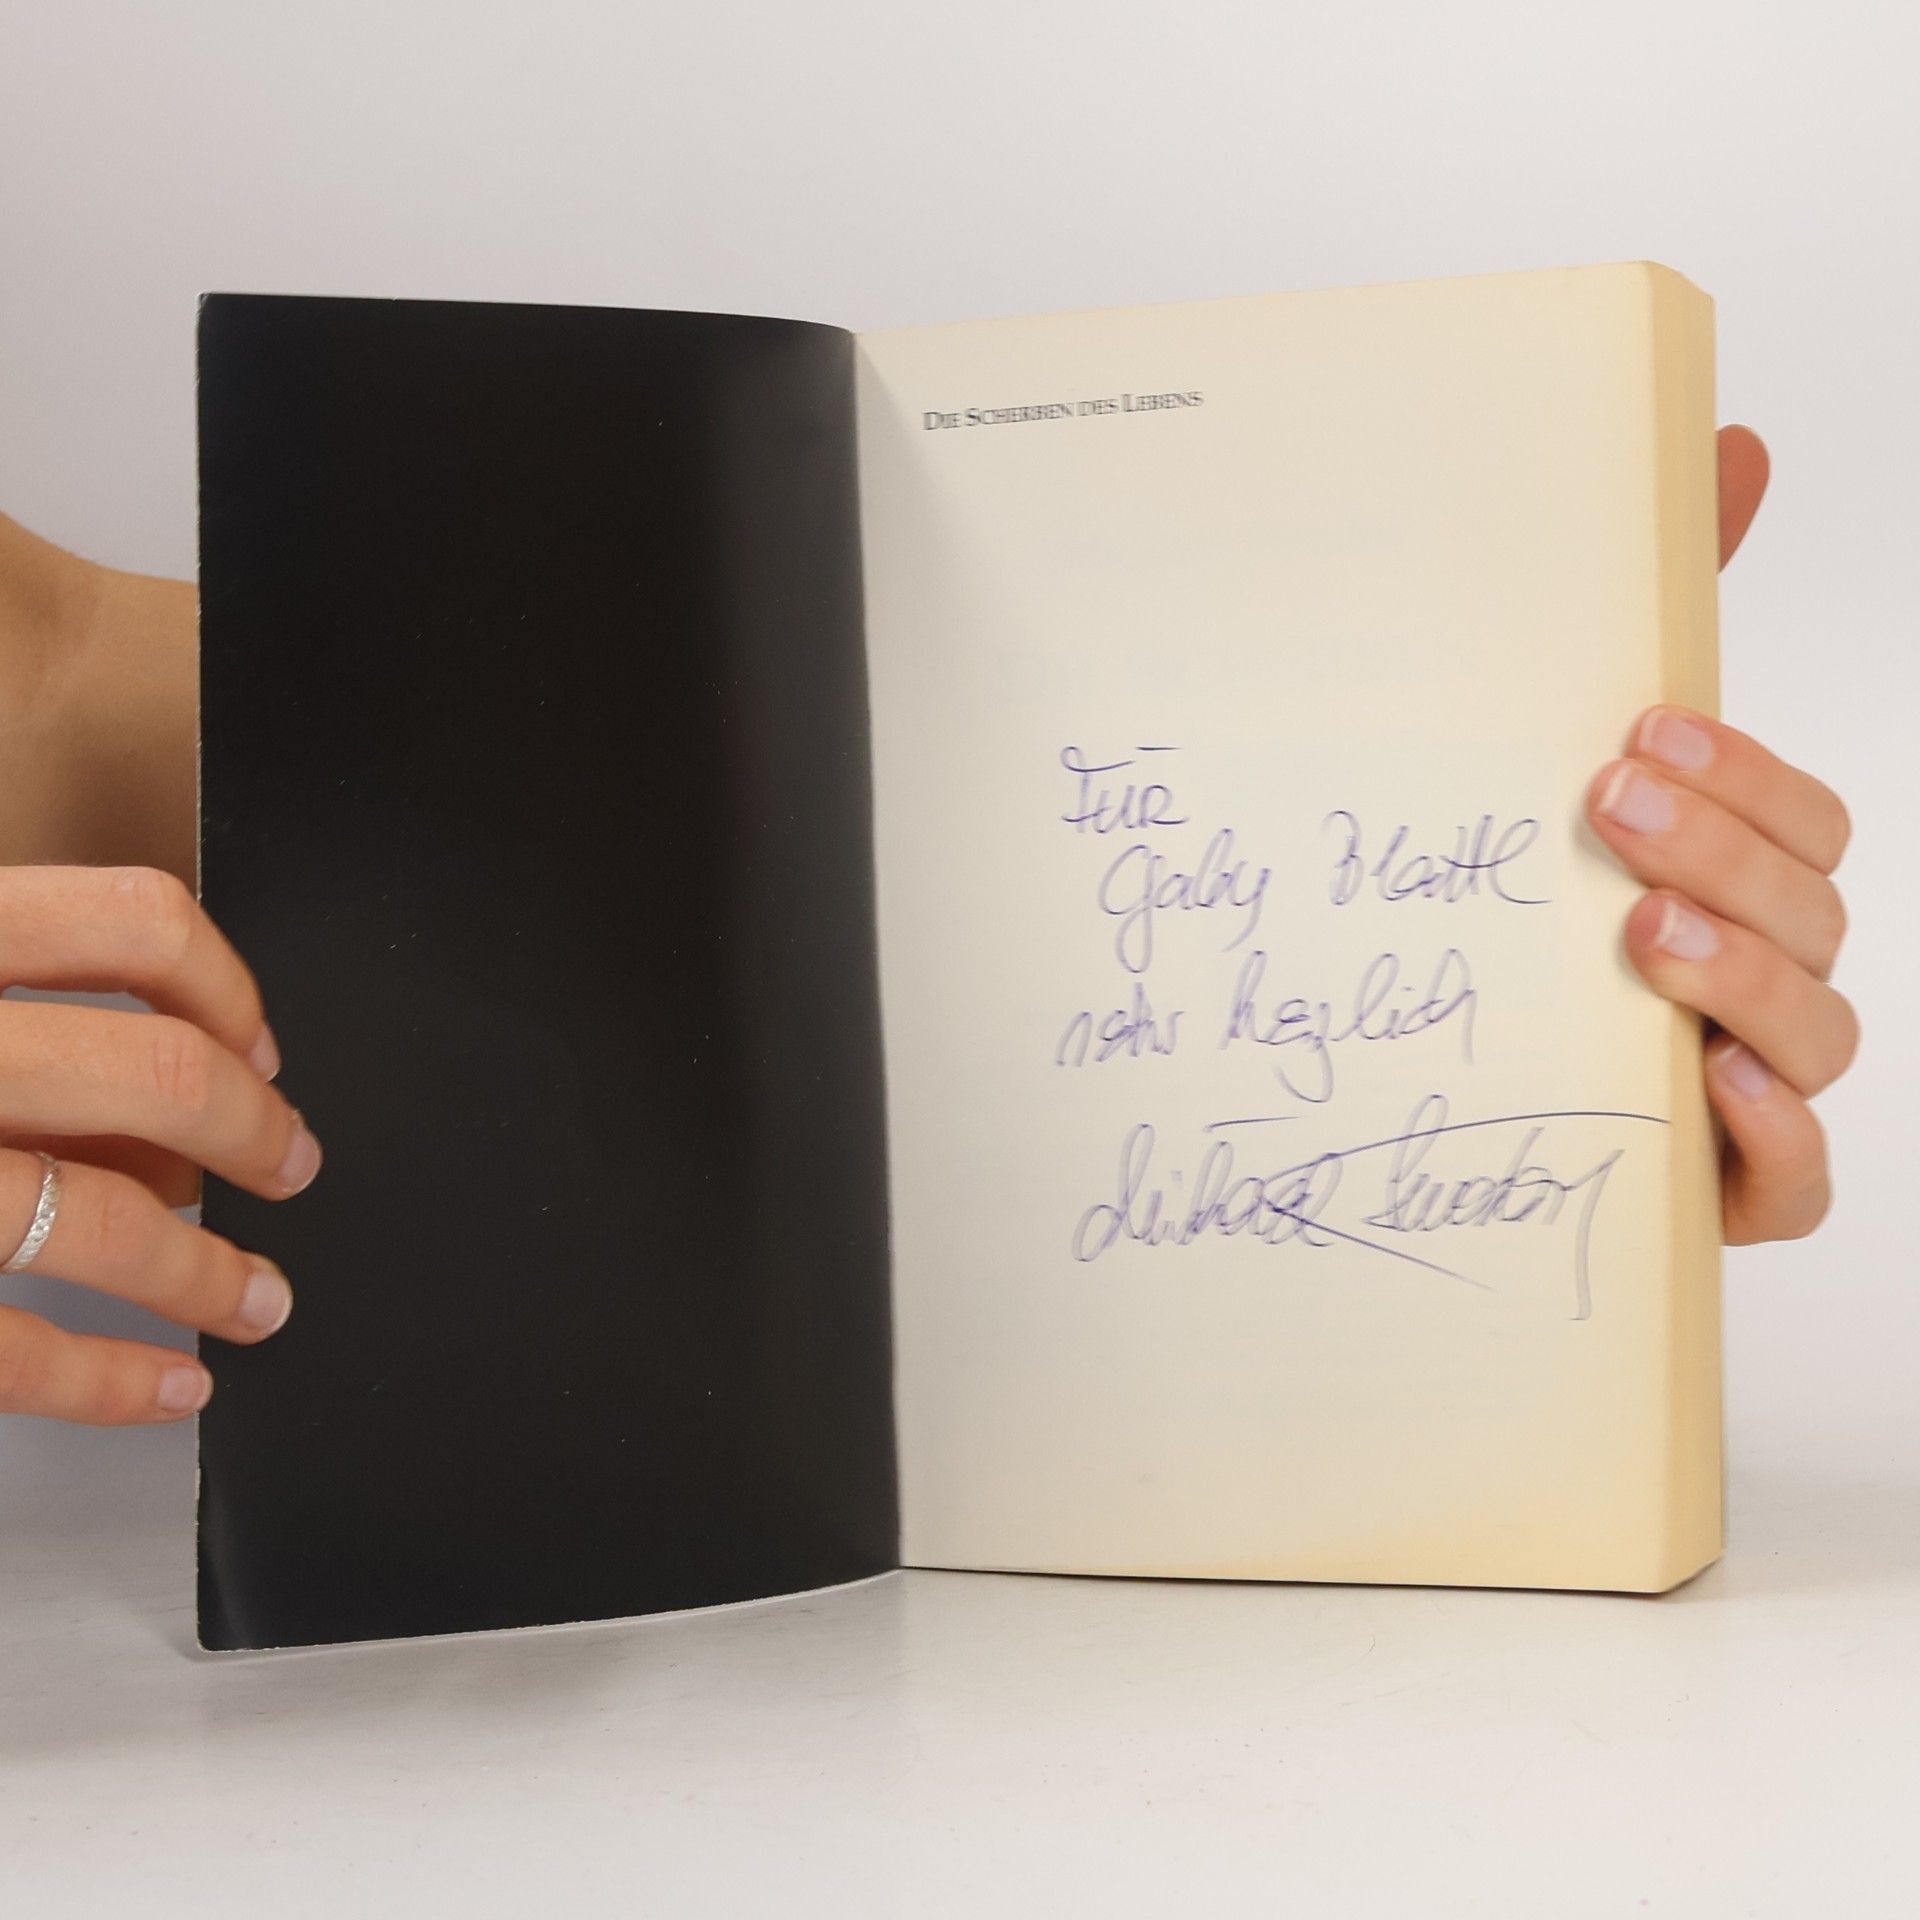 DIE SCHERBEN DES LEBENS
Für
Gaby
sehr herzlich
Michael